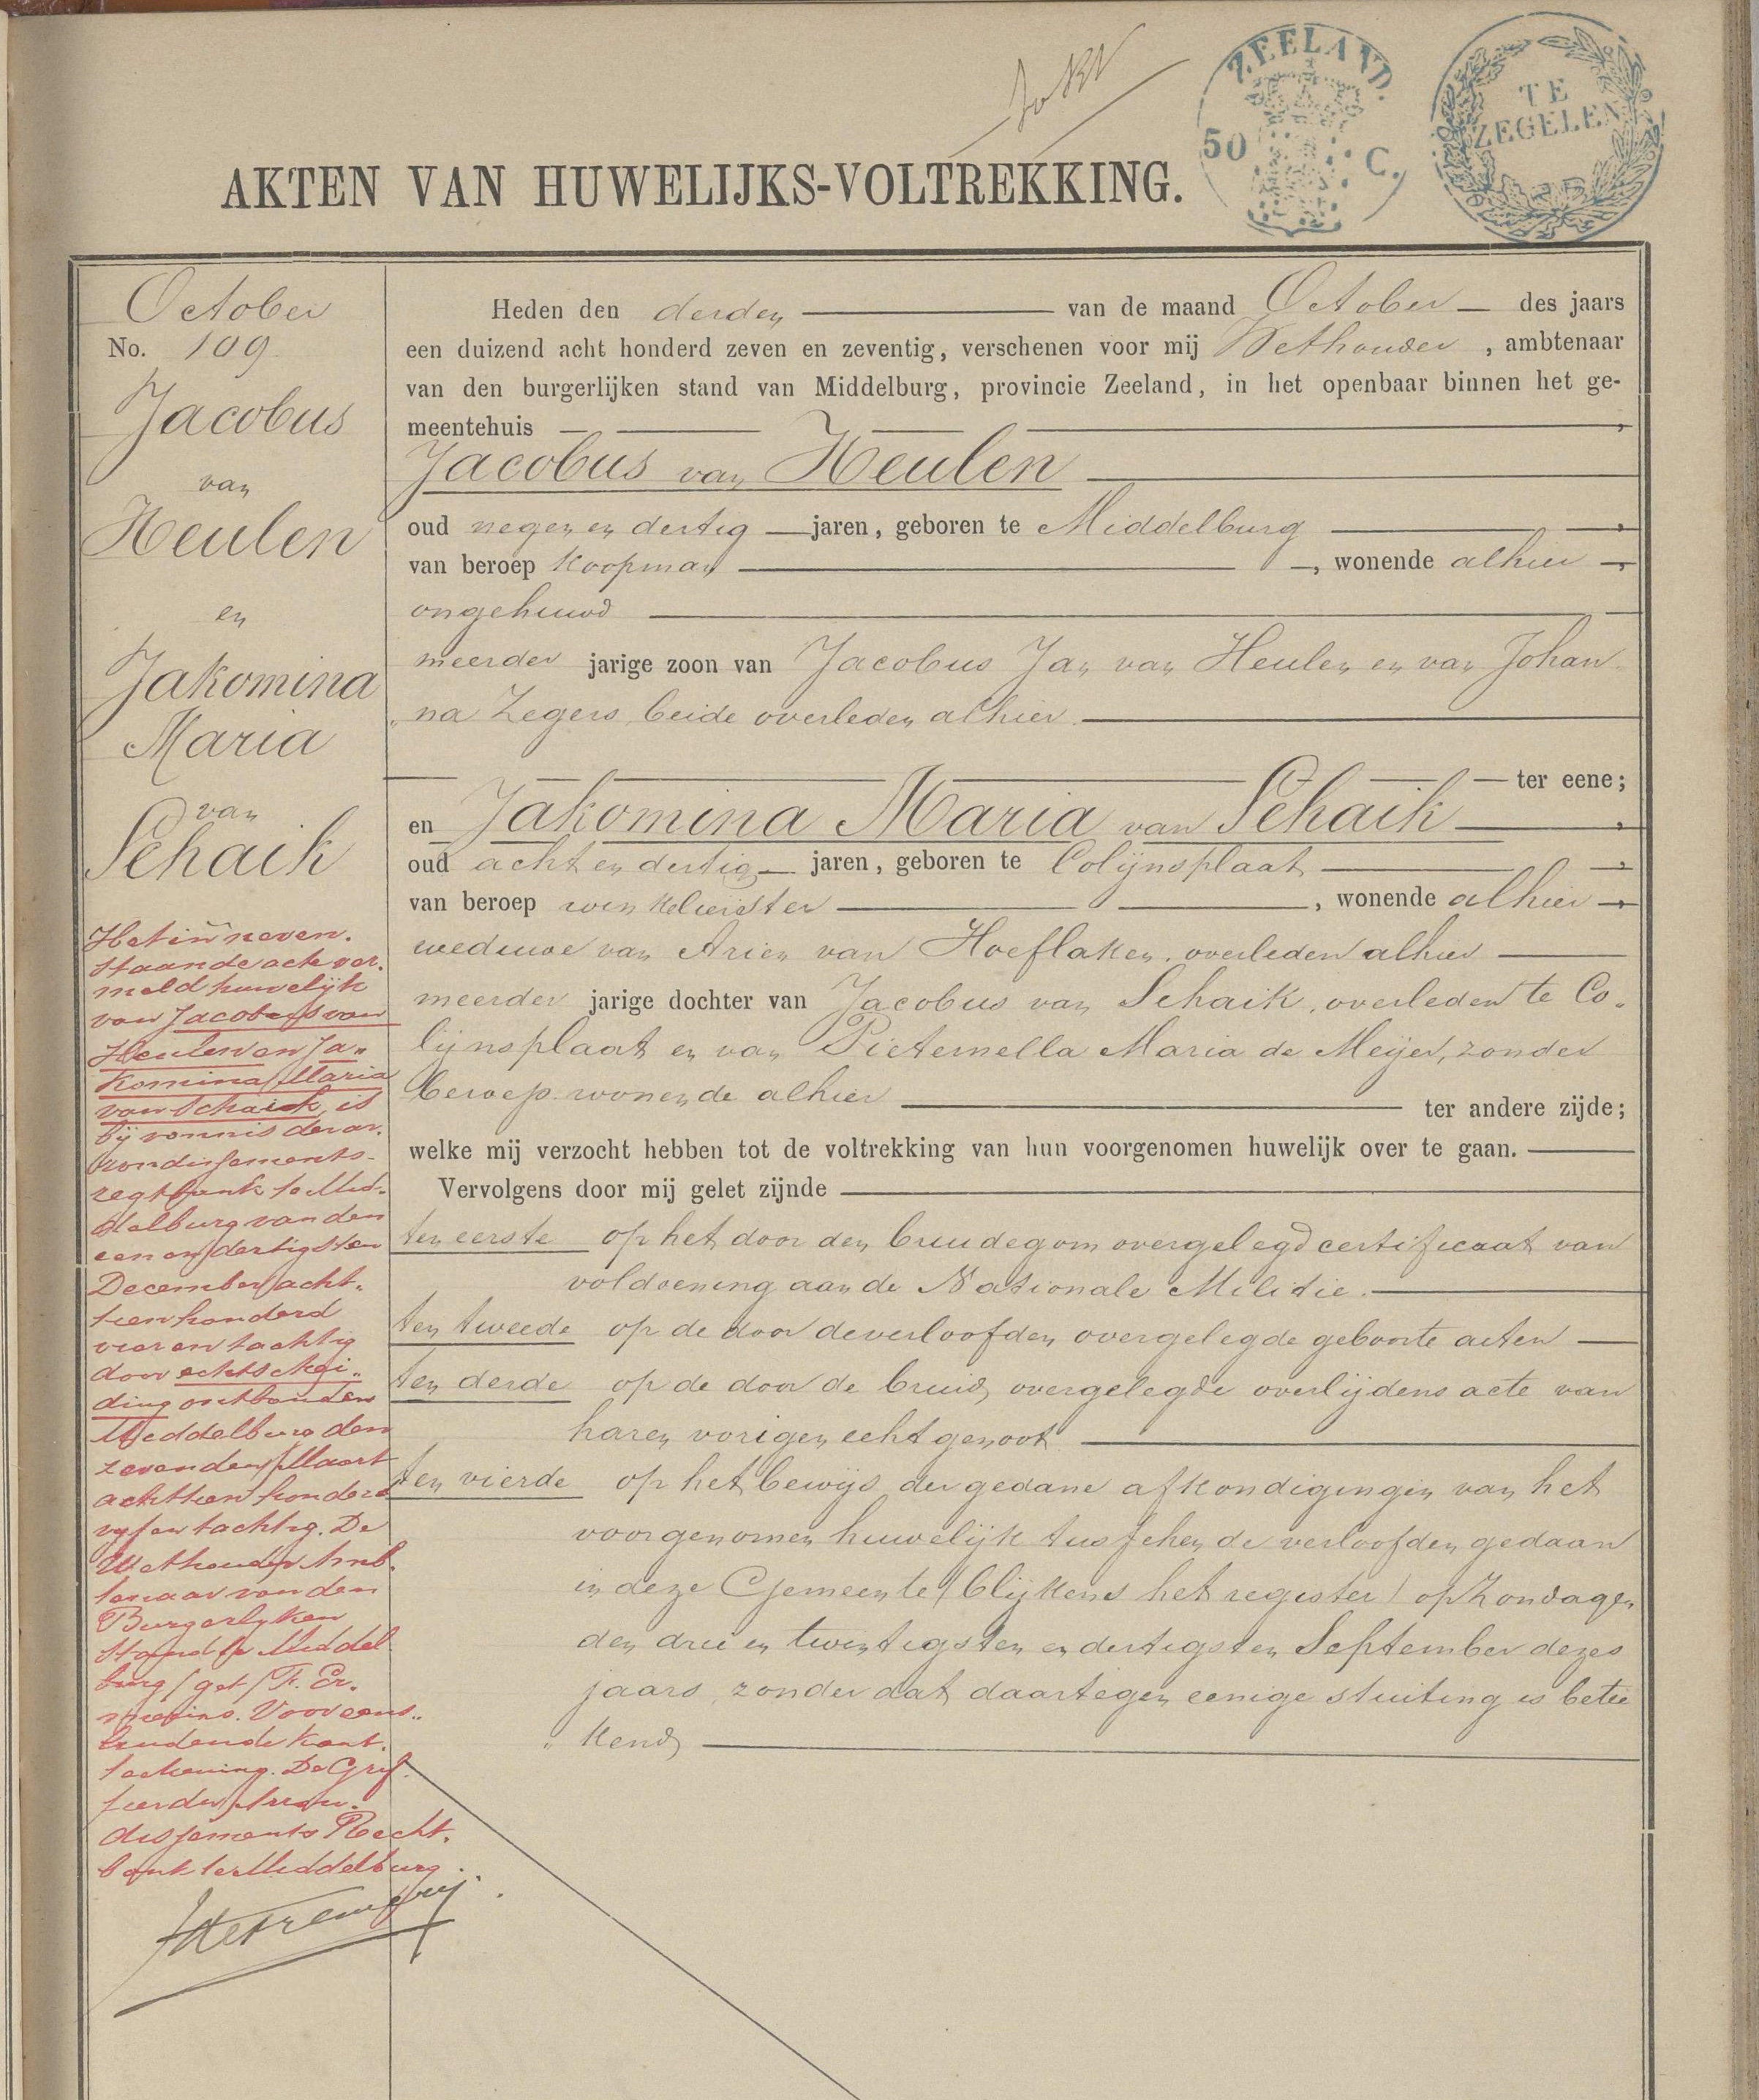 ZEELAND.
50 C.
TE
ZEGELEN
AKTEN VAN HUWELIJKS-VOLTREKKING.
October
No. 109
Jacobus
van
Heulen
en
Jakomina
Maria
van
Schaik
Het in neven-
staande acte ver-
meld huwelijk
van Jacobus van
Heulen en Ja-
komina Maria
van Schaick, is
bij vonnis der ar-
rondissements-
regtbank te Mid-
delburg van den
een en dertigsten
December acht-
tien honderd
vier en tachtig
door echtschei-
ding ontbonden
Middelburg den
zevenden Maart
achttien honderd
vyf en tachtig. De
Wethouder Amb-
tenaar van den
Burgerlyken
Stand te Middel
burg (get) F. Er-
merins. Voor eens-
luidende kant-
teekening. De Grif-
fier der Arron-
dissements Recht-
bank te Middelburg.
Heden den derden van de maand October des jaars
een duizend acht honderd zeven en zeventig, verschenen voor mij Wethouder, ambtenaar
van den burgerlijken stand van Middelburg, provincie Zeeland, in het openbaar binnen het ge-
meentehuis,
Jacobus van Heulen
oud negen en dertig jaren, geboren te Middelburg,
van beroep koopman, wonende alhier,
ongehuwd
meerder jarige zoon van Jacobus Jan van Heulen en van Johan-
"na Zegers, beide overleden alhier.
ter eene;
en Jakomina Maria van Schaik,
oud acht en dertig jaren, geboren te Colijnsplaat,
van beroep winkelierster, wonende alhier,
weduwe van Arien van Hoeflaken, overleden alhier
meerder jarige dochter van Jacobus van Schaik, overleden te Co-
lijnsplaat en van Pieternella Maria de Meijer, zonder
beroep wonende alhier ter andere zijde;
welke mij verzocht hebben tot de voltrekking van hun voorgenomen huwelijk over te gaan.
Vervolgens door mij gelet zijnde
ten eerste op het door den bruidegom overgelegd certificaat van
voldoening aan de Nationale Militie.
ten tweede op de door de verloofden overgelegde geboorte acten
ten derde op de door de bruid overgelegde overlijdens acte van
haren vorigen echtgenoot
ten vierde op het bewijs der gedane afkondigingen van het
voorgenomen huwelijk tusschen de verloofden gedaan
in deze Gemeente (blijkens het register) op Zondagen
den drie en twintigsten en dertigsten September dezes
jaars, zonder dat daartegen eenige stuiting is betee
"kend